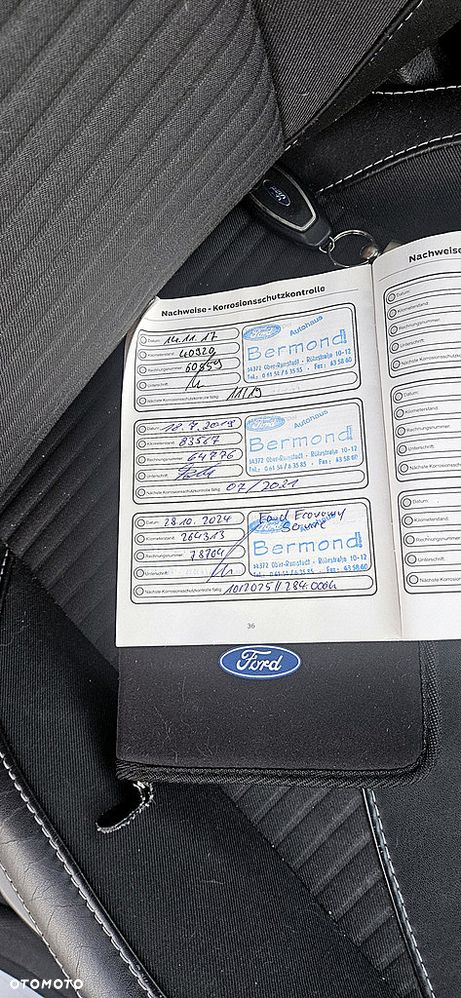 Ford
Nachweise - Korrosionsschutzkontrolle
Datum: 14.11.17
Kilometerstand: 40929
Rechnungsnummer: 60559
Unterschrift:
Nächste Korrosionsschutzkontrolle fällig: 11/19
Ford Autohaus
Bermond
64372 Ober-Ramstadt · Röhrstraße 10-12
Tel.: 0 61 54 / 6 35 85 · Fax: 63 58 60
Datum: 18.7.2019
Kilometerstand: 83567
Rechnungsnummer: 64776
Unterschrift:
Nächste Korrosionsschutzkontrolle fällig: 07/2021
Ford Autohaus
Bermond
64372 Ober-Ramstadt · Röhrstraße 10-12
Tel.: 0 61 54 / 6 35 85 · Fax: 63 58 60
Datum: 28.10.2024
Kilometerstand: 264313
Rechnungsnummer: 78704
Unterschrift:
Nächste Korrosionsschutzkontrolle fällig: 10/2025 // 284.000k
Ford Economy
Service
Bermond
64372 Ober-Ramstadt · Röhrstraße 10-12
Tel.: 0 61 54 / 6 35 85 · Fax: 63 58 60
36
Nachweise
Datum:
Kilometerstand:
Rechnungsnummer:
Unterschrift:
Nächste Korrosionsschutzkon
Datum:
Kilometerstand:
Rechnungsnummer:
Unterschrift:
Nächste Korrosionssch
Datum:
Kilometerstand:
Rechnungsnummer:
Unterschrift:
Nächste Korrosions
Ford
OTOMOTO